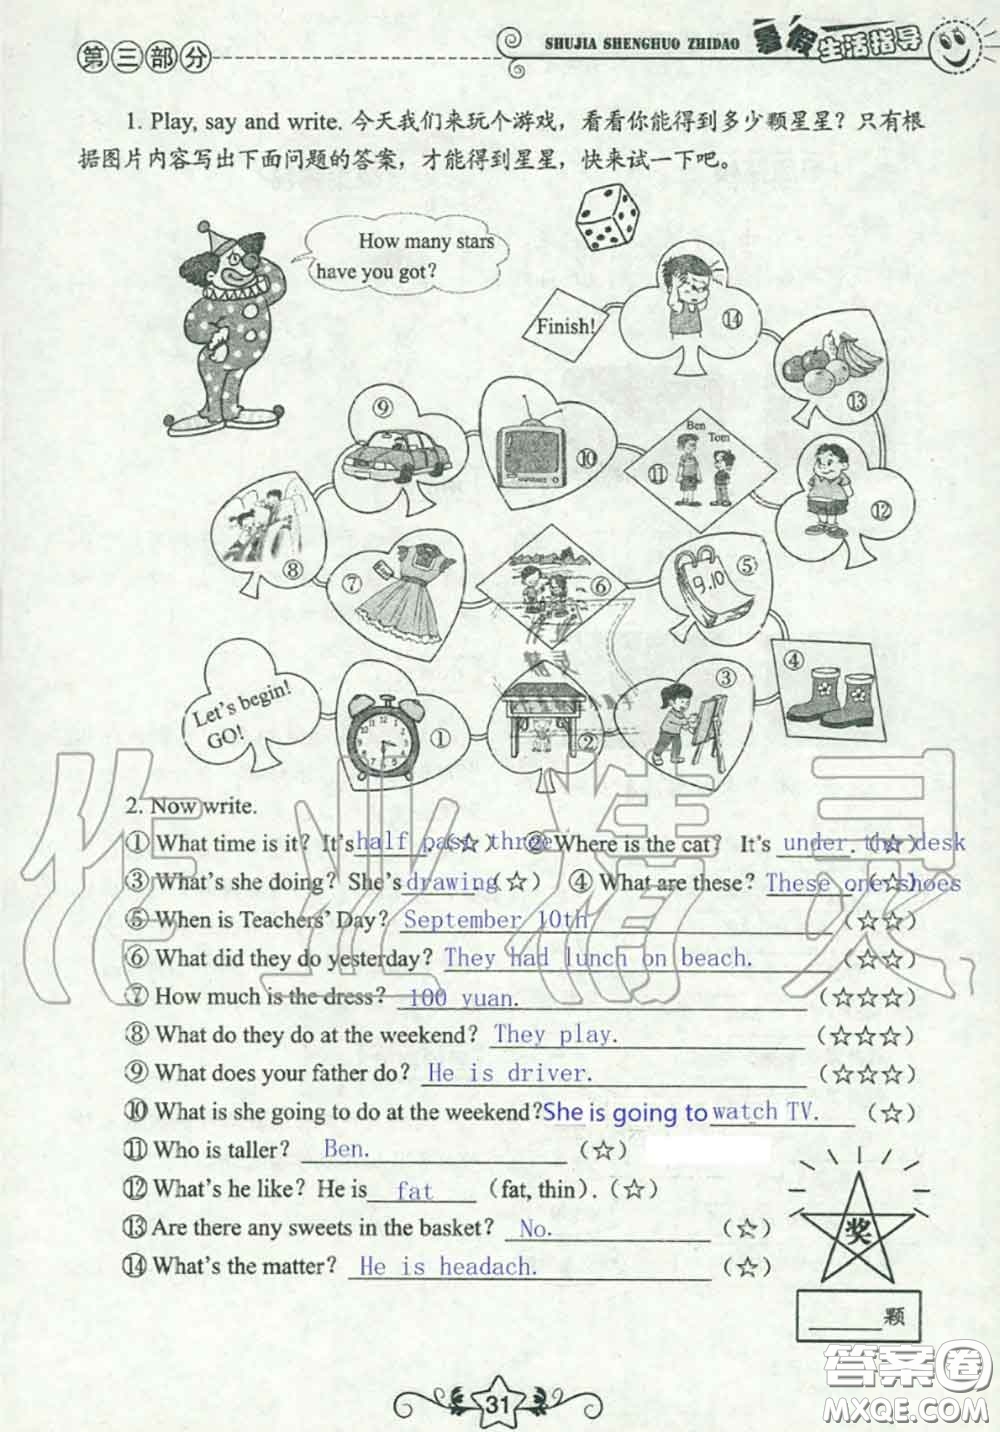 第三部分
SHUJIA SHENGHUO ZHIDAO 暑假生活指导
1. Play, say and write. 今天我们来玩个游戏，看看你能得到多少颗星星？只有根
据图片内容写出下面问题的答案，才能得到星星，快来试一下吧。
How many stars
have you got?
Finish!
⑭
⑬
⑨
⑩
Ben
Tom
⑪
⑫
⑧
⑦
⑥
9.10
⑤
Let's begin!
GO!
①
②
③
④
2. Now write.
① What time is it? It's half past three (☆) ② Where is the cat? It's under the desk. (☆)
③ What's she doing? She's drawing (☆) ④ What are these? These one shoes (☆)
⑤ When is Teachers' Day? September 10th (☆☆)
⑥ What did they do yesterday? They had lunch on beach. (☆☆)
⑦ How much is the dress? 100 yuan. (☆☆☆)
⑧ What do they do at the weekend? They play. (☆☆☆)
⑨ What does your father do? He is driver. (☆☆☆)
⑩ What is she going to do at the weekend? She is going to watch TV. (☆)
⑪ Who is taller? Ben. (☆)
⑫ What's he like? He is fat (fat, thin). (☆)
⑬ Are there any sweets in the basket? No. (☆)
⑭ What's the matter? He is headach. (☆)
奖
____颗
31
作业精灵
答案圈
MXQE.COM